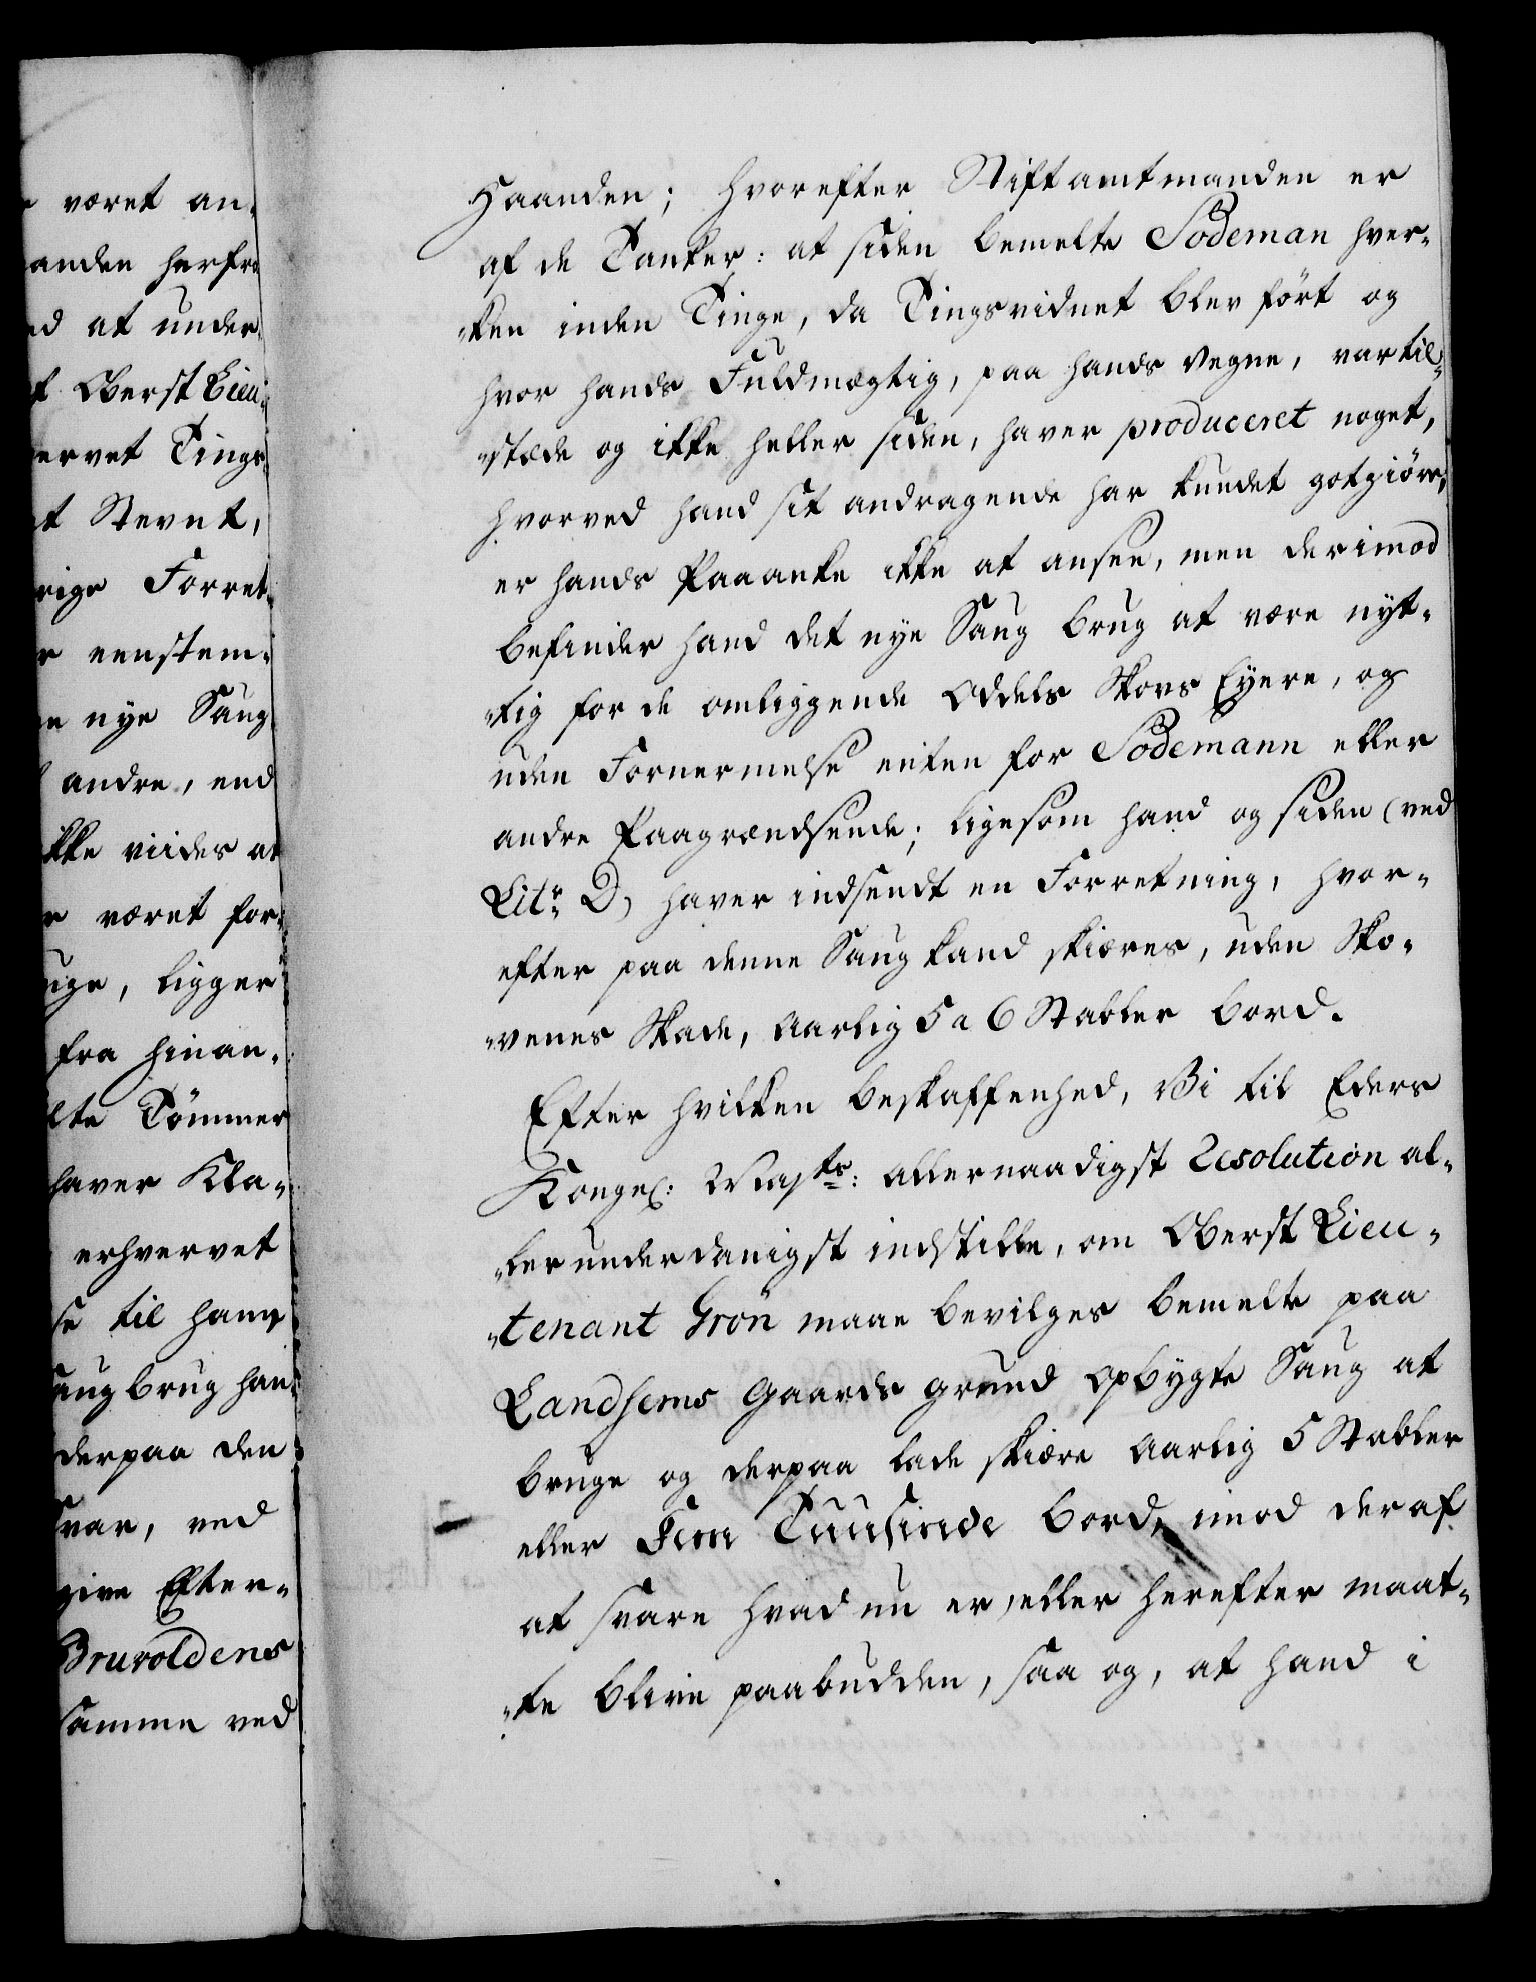 været an-
anden herfra
ed at under
Oberst Lieu-
ervet Tings
Stevnt,
rige Forret
eenstem-
nye Saug
andre, end
ikke viides at
været for-
uge, ligger
fra hinan-
lte Tømmer
haver Kla-
erhvervet
se til hans
augbrug han
derpaa den
svar, ved
give Efter-
Bruvoldens
samme ved
Haanden; hvorefter Stiftamtmanden er
af de Tanker: at siden bemelte Södeman hver-
ken inden Tinge, da Tingsvidnet blev fört og
hvor hands Fuldmægtig, paa hands vegne, var til-
stæde og ikke heller siden, haver produceret noget,
hvorved hand sit andragende har kundet gotgiöre,
er hands Paaanke ikke at ansee, men derimod
befinder hand det nye Saug brug at være nyt-
tig for de omliggende Oddels Skovs Eyere, og
uden Fornermelse enten for Södemann eller
andre Paagrændsende; ligesom hand og siden (ved
Litr D) haver indsendt en Forretning, hvor-
efter paa denne Saug kand skiæres, uden Sko-
venes Skade, Aarlig 5 a 6 Stabler bord.
Efter hvilken beskaffenhed, Vi til Eders
Kongel: Mayts: allernaadigst Resolution al-
lerunderdanigst indstille, om Oberst Lieu-
tenant Grön maae bevilges bemelte paa
Landsems Gaards grund Opbygte Saug at
bruge og derpaa lade skiære Aarlig 5 Stabler
eller Fem Tuusinde bord, imod deraf
at svare hvad nu er, eller herefter maat-
te blive paabudden, saa og, at hand i